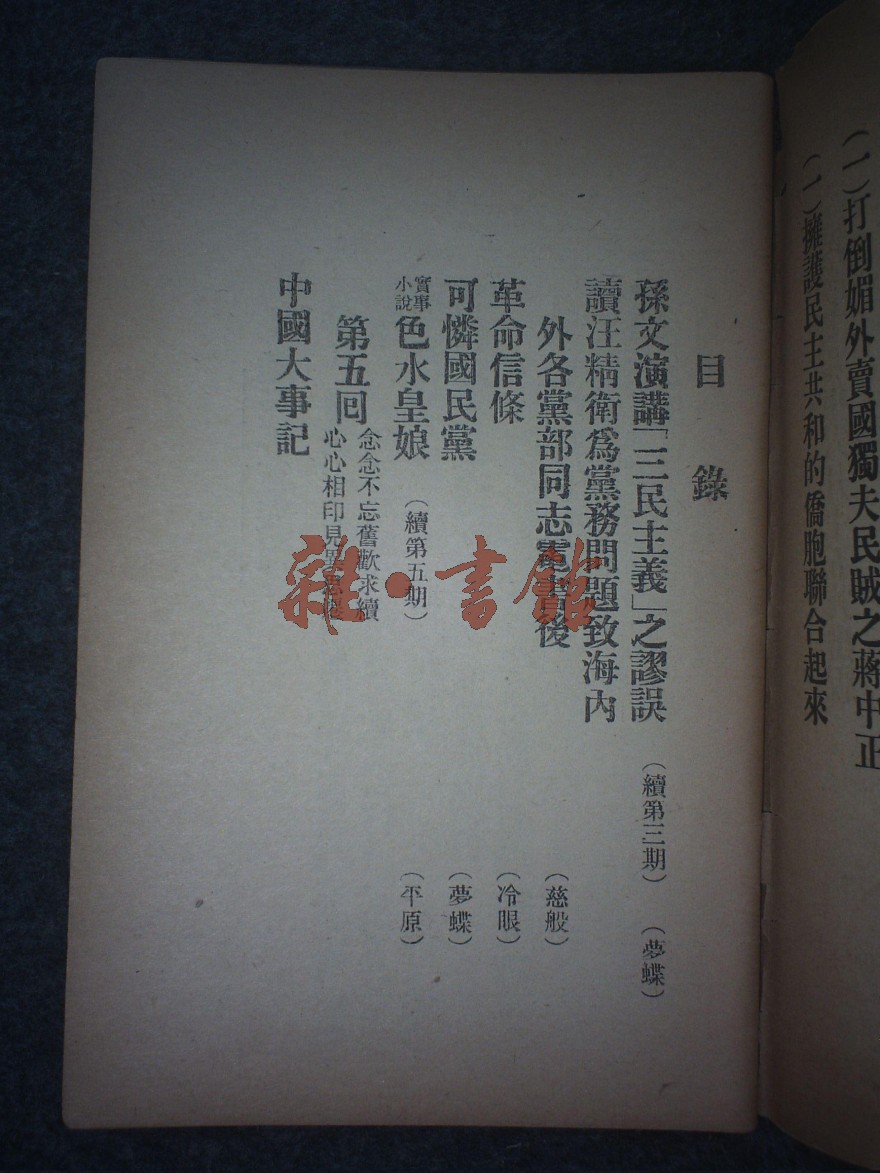 (一)打倒媚外賣國獨夫民賊之蔣中正
(一)擁護民主共和的僑胞聯合起來
目錄
孫文演講「三民主義」之謬誤(續第三期)(夢蝶)
讀汪精衛爲黨務問題致海內
外各黨部同志電書後(慈般)
革命信條(冷眼)
可憐國民黨(夢蝶)
實事
小說
色水皇娘(續第五期)(平原)
第五囘
念念不忘舊歡求續
心心相印見
中國大事記
雜·書館